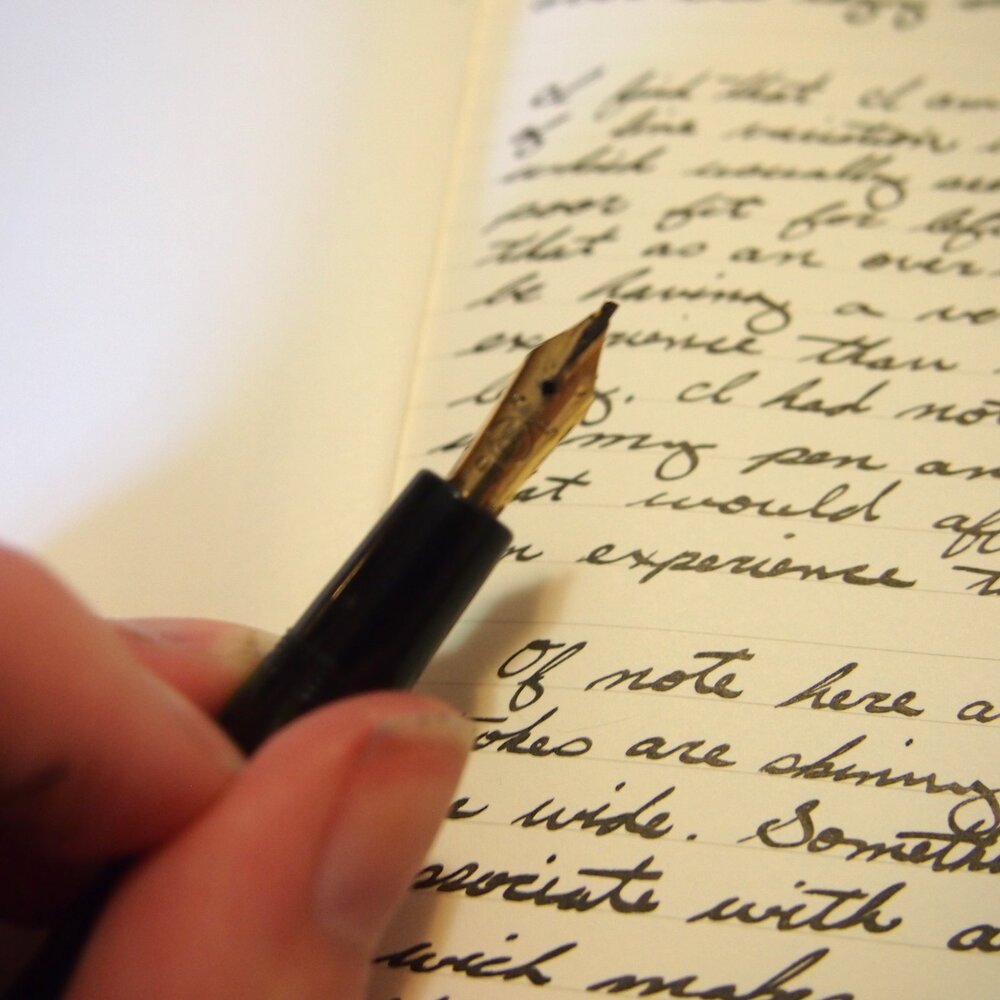 I find that I
of line variation
which usually
poor fit for
that as an over
be having a
experience than
I had not
my pen an
at would aff
n experience t
Of note here a
okes are skinny
wide. Someth
ssociate with a
wich makes